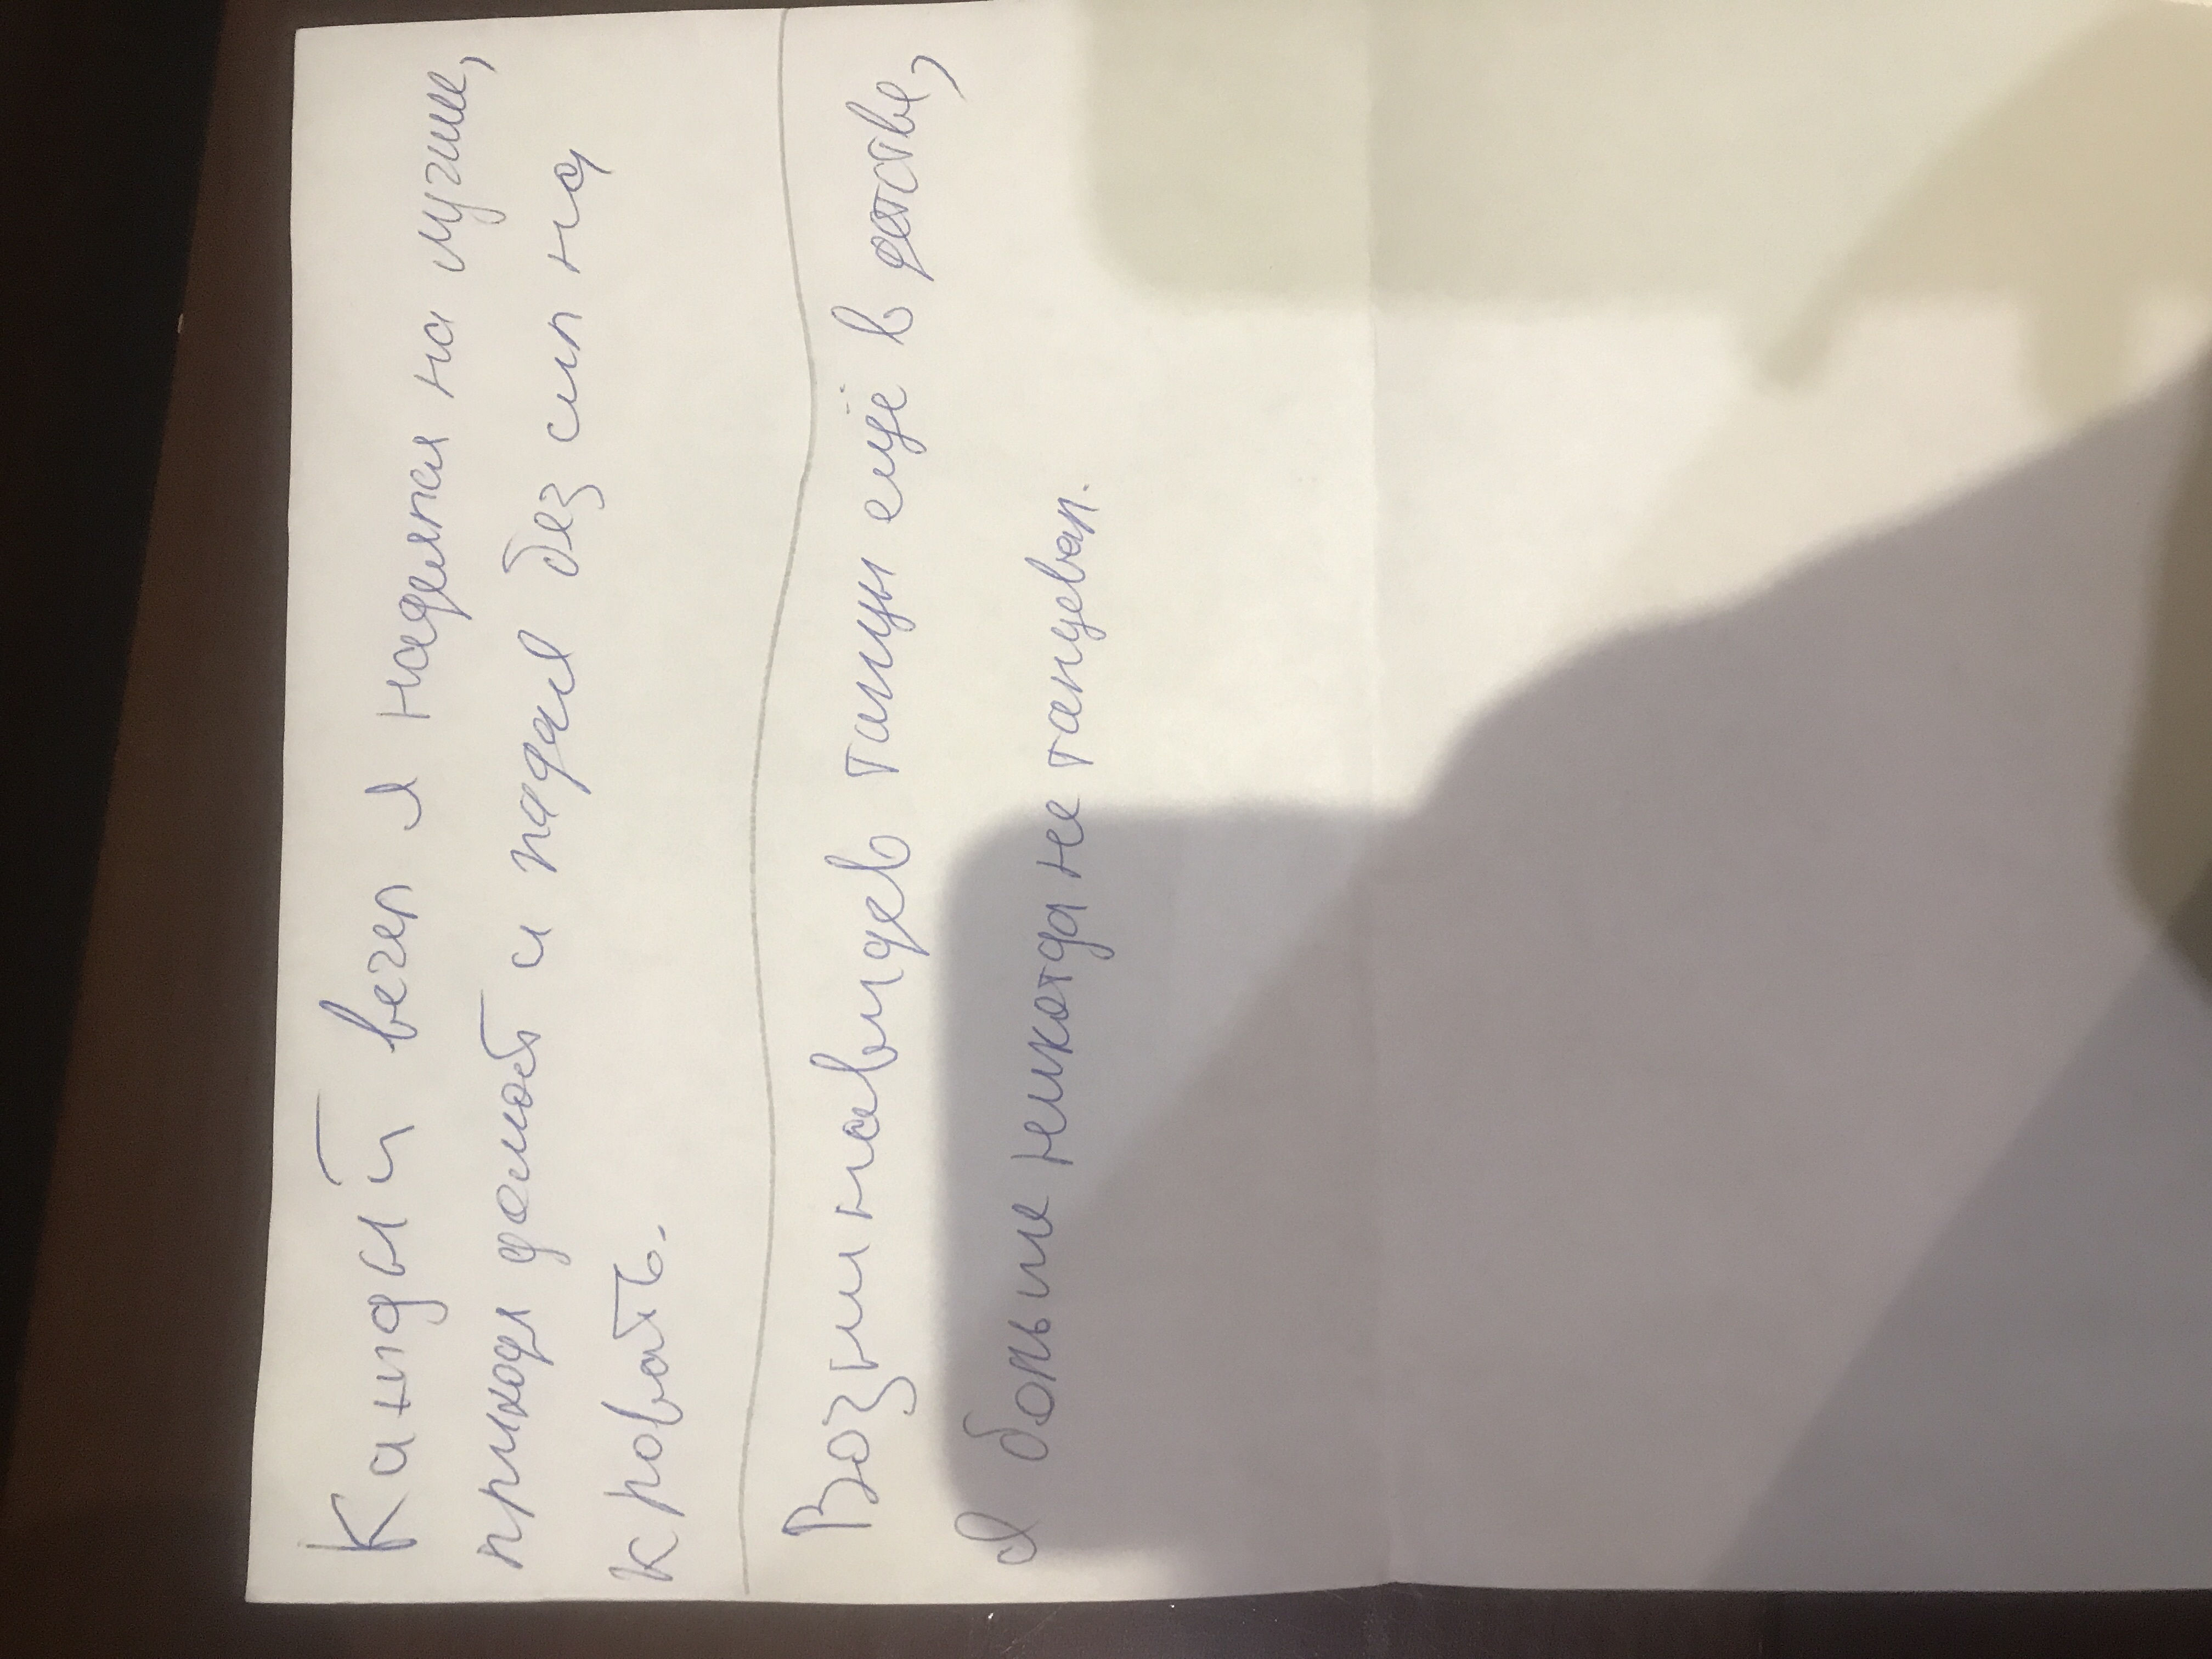 Каждый вечер я надеялся на лучшее,
приходя домой и падая без сил на
кровать.
Возненавидев танцы ещё в детстве,
я больше никогда не танцевал.